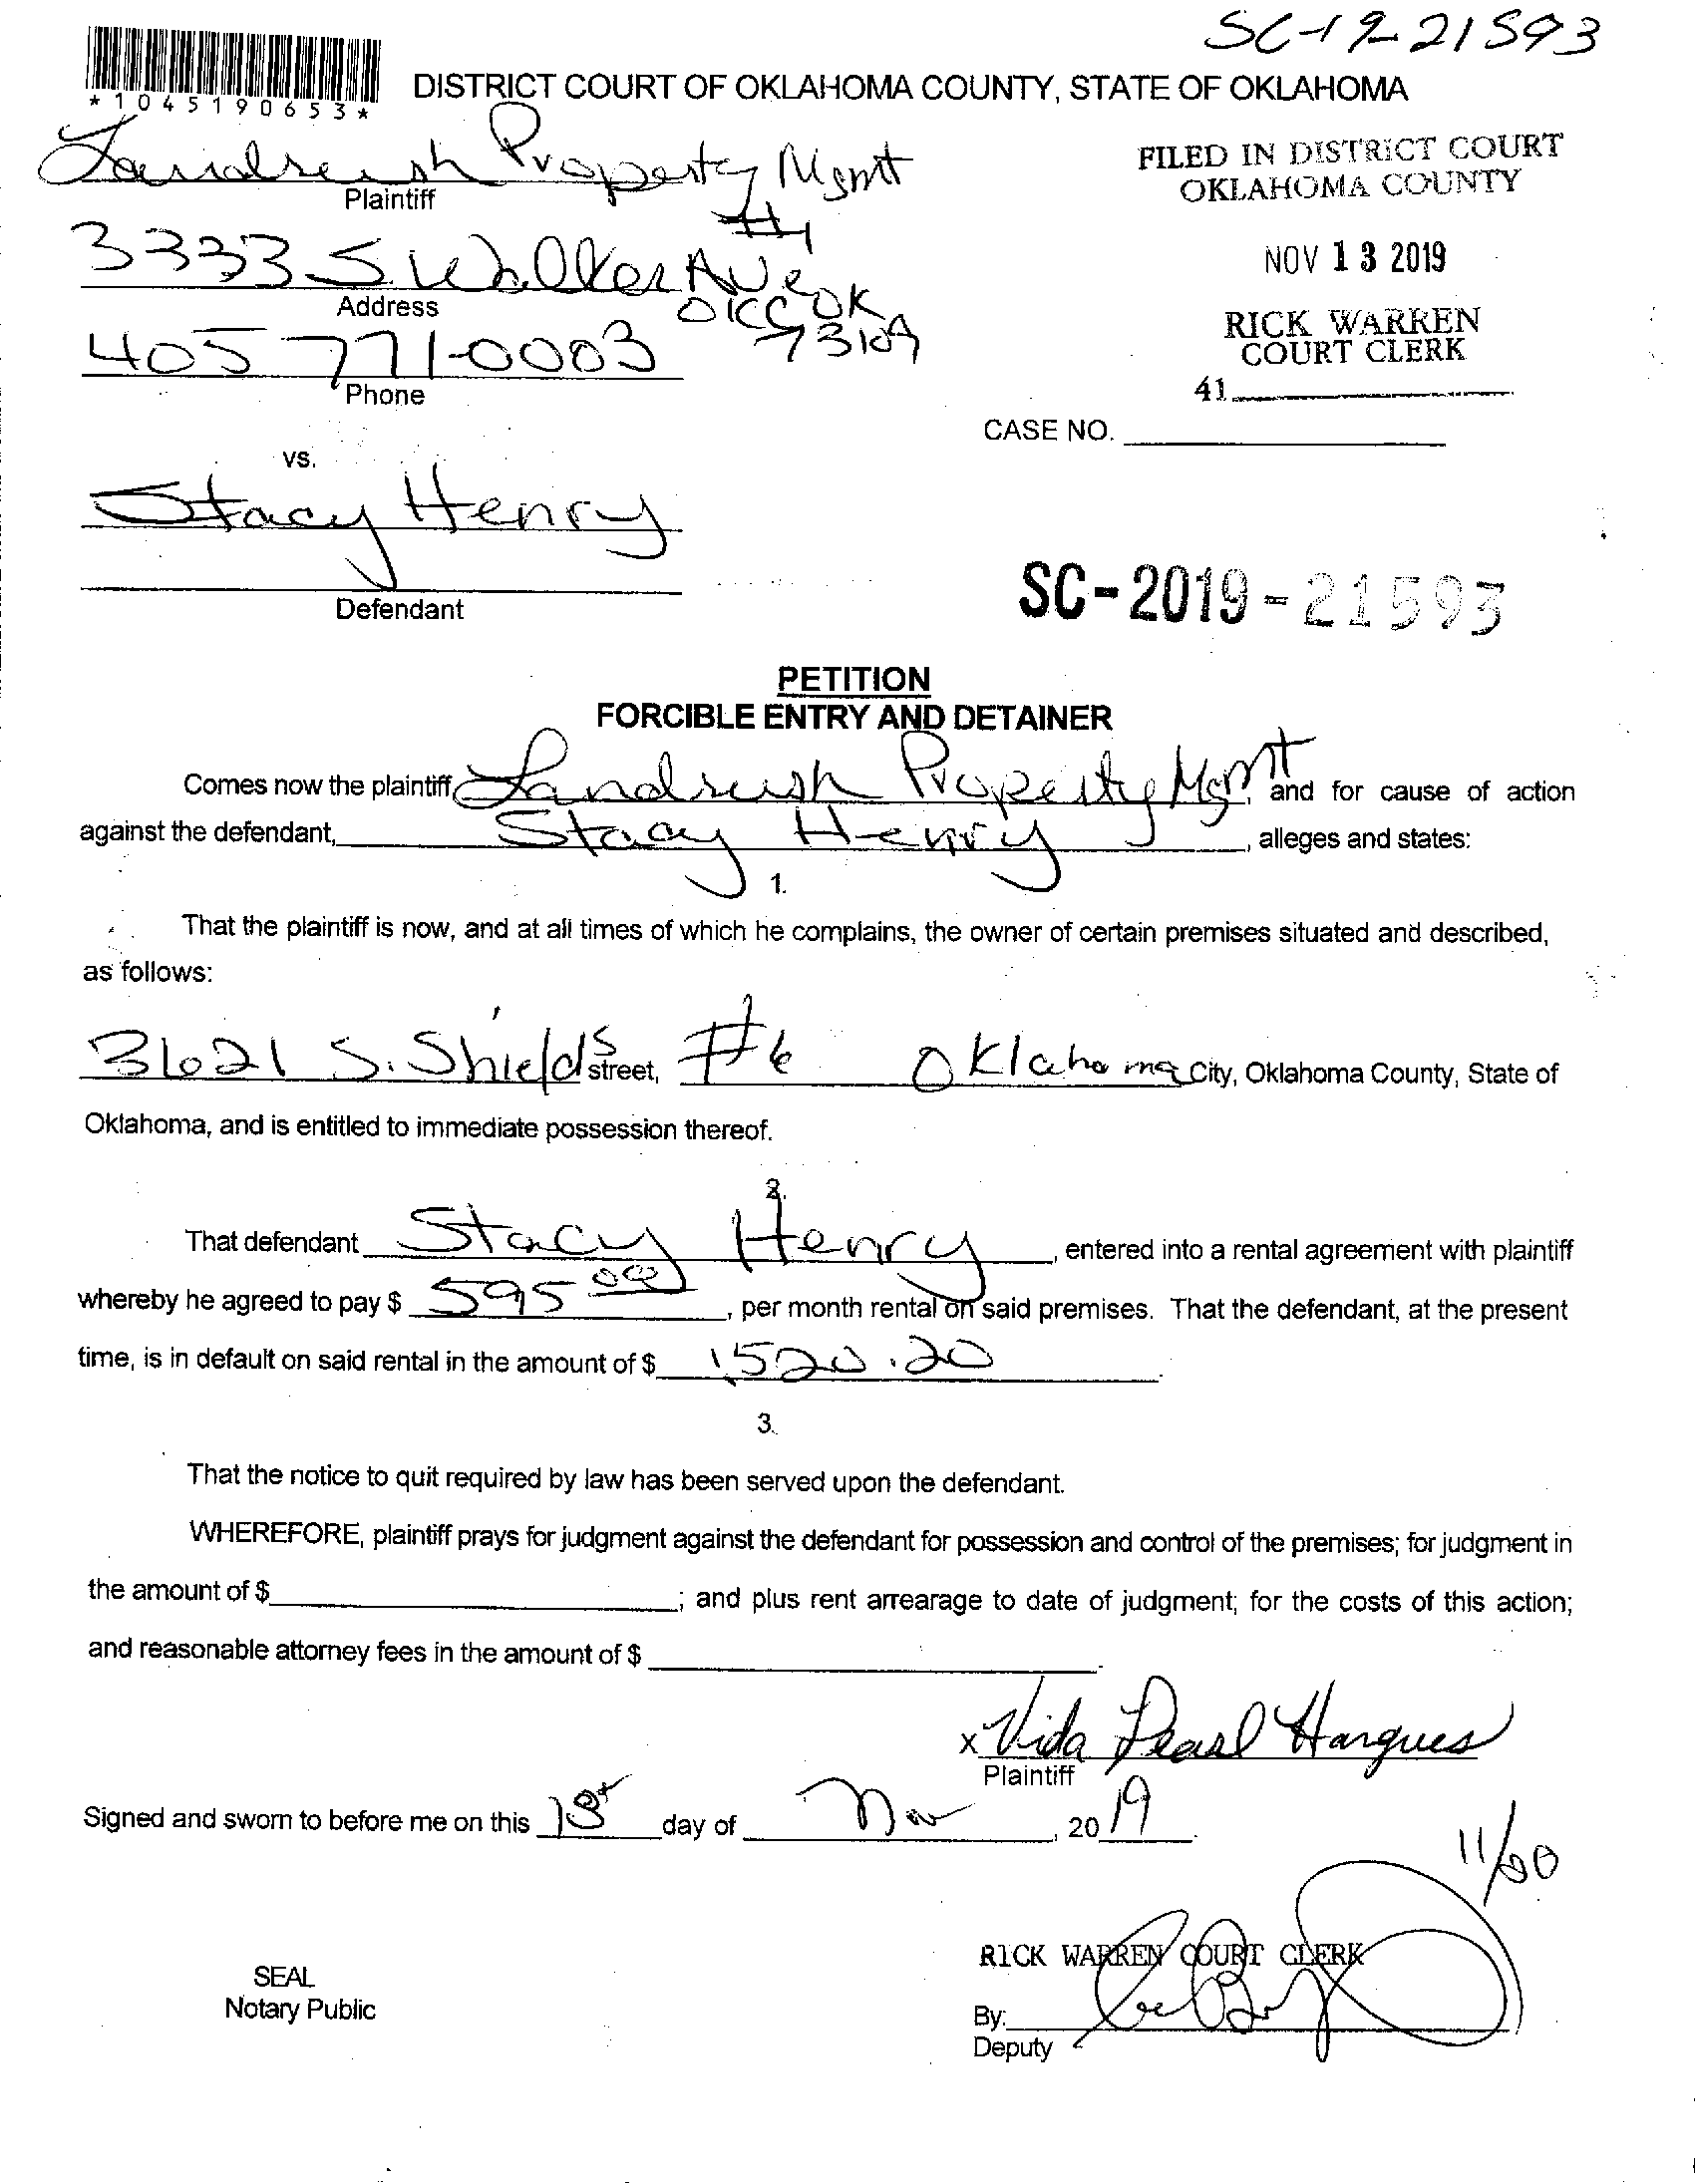 SC-19-21593
*1045190653*
DISTRICT COURT OF OKLAHOMA COUNTY, STATE OF OKLAHOMA
Landrush Property Mgmt
Plaintiff
FILED IN DISTRICT COURT
OKLAHOMA COUNTY
#1
3333 S Walker Ave
NOV 13 2019
Address
OKC OK
73109
RICK WARREN
COURT CLERK
405 771-0003
Phone
41
CASE NO.
vs.
Stacy Henry
Defendant
SC-2019-21593
PETITION
FORCIBLE ENTRY AND DETAINER
Comes now the plaintiff, Landrush Property Mgmt, and for cause of action
against the defendant, Stacy Henry, alleges and states:
1.
That the plaintiff is now, and at all times of which he complains, the owner of certain premises situated and described,
as follows:
3621 S. Shields street, #6 Oklahoma City, Oklahoma County, State of
Oklahoma, and is entitled to immediate possession thereof.
2.
That defendant Stacy Henry, entered into a rental agreement with plaintiff
whereby he agreed to pay $ 595 00, per month rental on said premises. That the defendant, at the present
time, is in default on said rental in the amount of $ 1,520.20.
3.
That the notice to quit required by law has been served upon the defendant.
WHEREFORE, plaintiff prays for judgment against the defendant for possession and control of the premises; for judgment in
the amount of $ ; and plus rent arrearage to date of judgment; for the costs of this action;
and reasonable attorney fees in the amount of $ .
x Vida Pearl Hargues
Plaintiff
Signed and sworn to before me on this day of Nov, 2019.
11/20
RICK WARREN COURT CLERK
SEAL
Notary Public
By:
Deputy